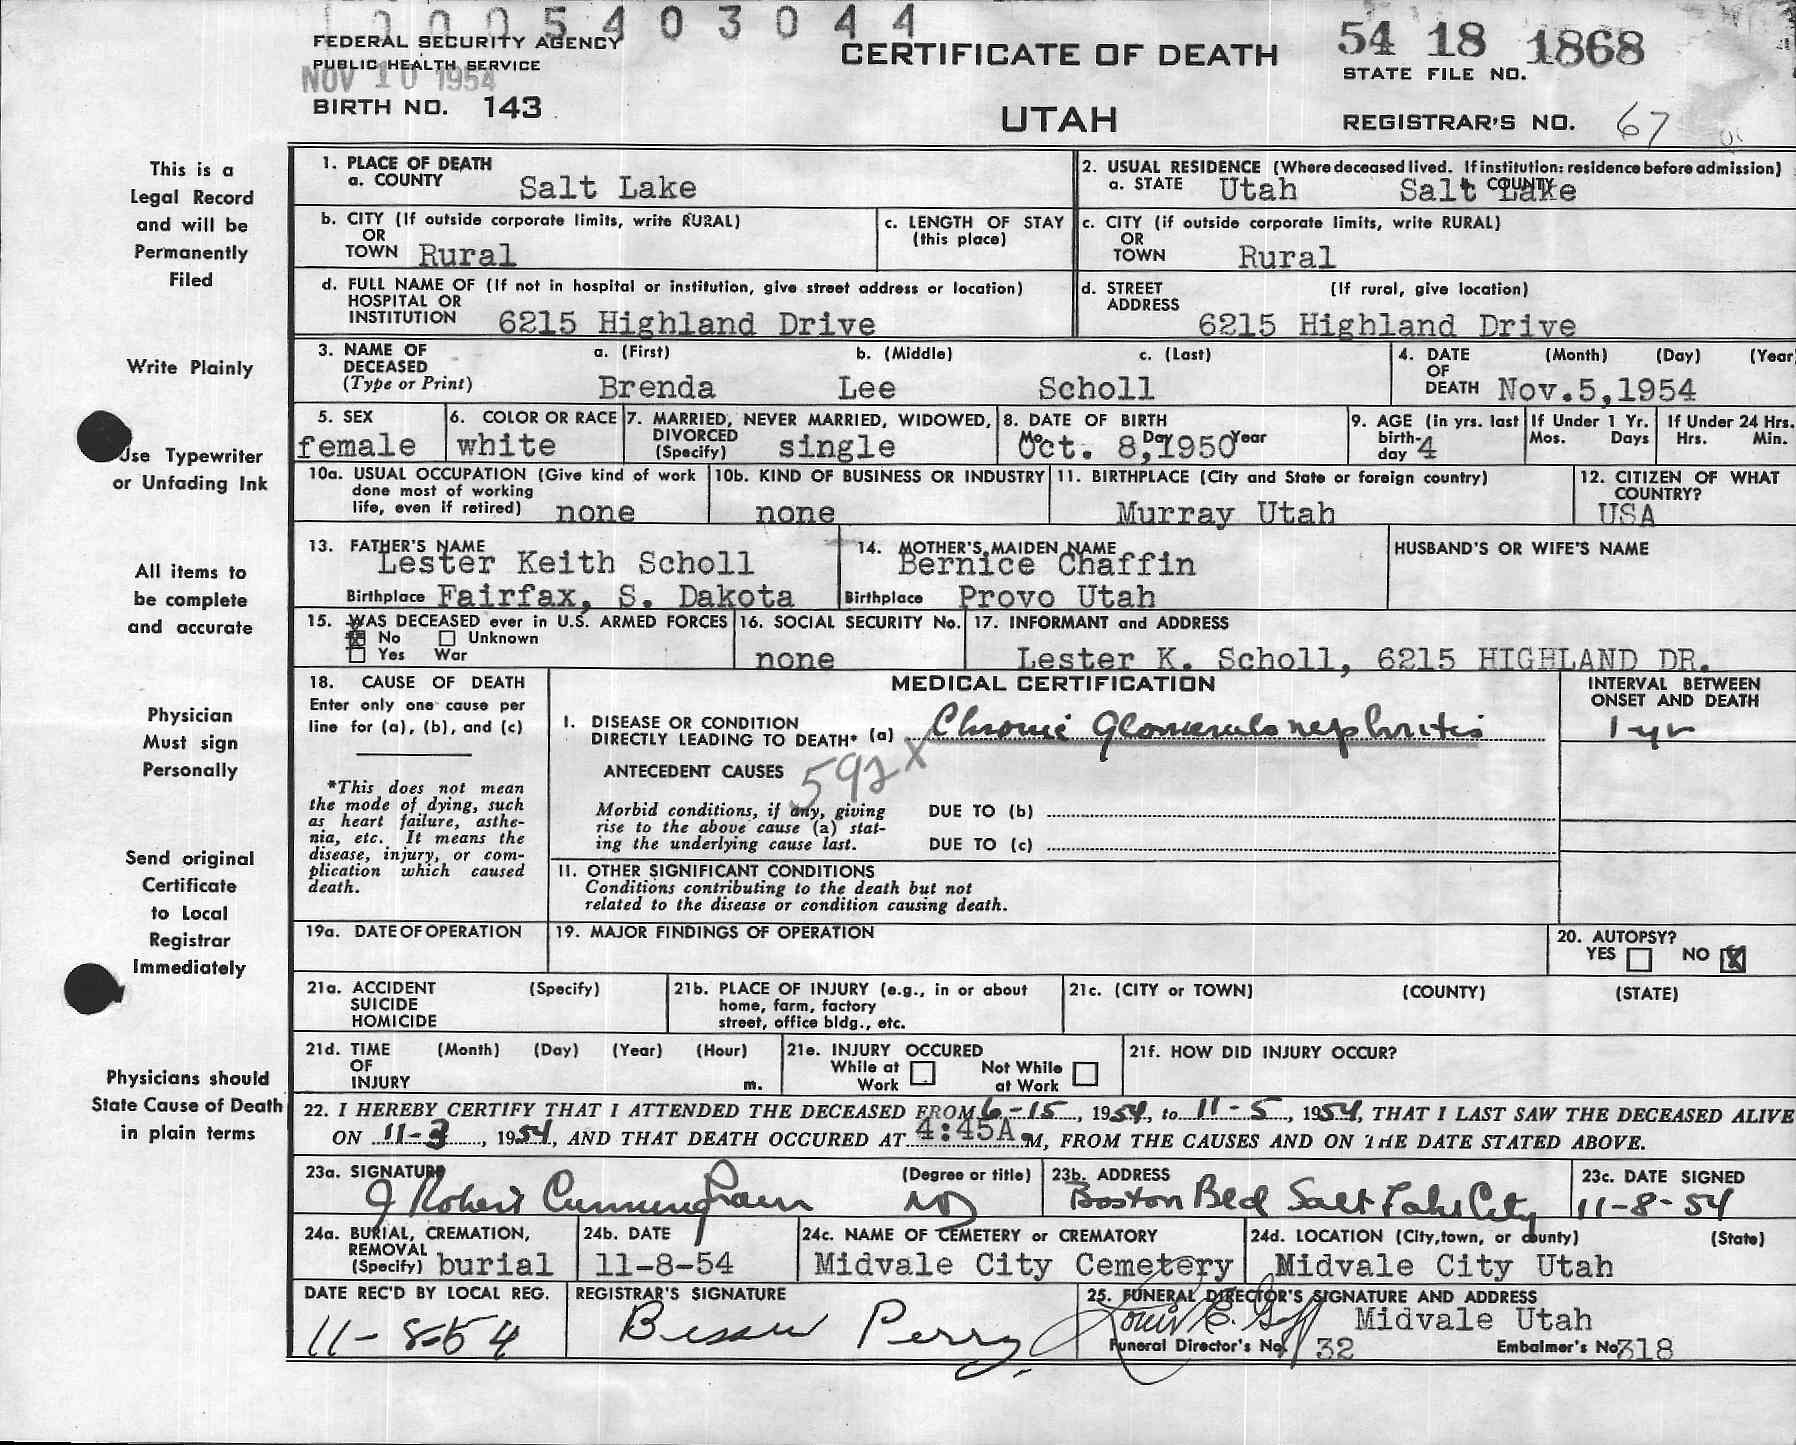 1005403044
FEDERAL SECURITY AGENCY
PUBLIC HEALTH SERVICE
NOV 10 1954
BIRTH NO. 143
CERTIFICATE OF DEATH
UTAH
54 18 1868
STATE FILE NO.
REGISTRAR'S NO. 67
This is a
Legal Record
and will be
Permanently
Filed
Write Plainly
Use Typewriter
or Unfading Ink
All items to
be complete
and accurate
Physician
Must sign
Personally
Send original
Certificate
to Local
Registrar
Immediately
Physicians should
State Cause of Death
in plain terms
1. PLACE OF DEATH
a. COUNTY Salt Lake
2. USUAL RESIDENCE (Where deceased lived. If institution: residence before admission)
a. STATE Utah COUNTY Salt Lake
b. CITY (If outside corporate limits, write RURAL)
OR
TOWN Rural
c. LENGTH OF STAY
(this place)
c. CITY (if outside corporate limits, write RURAL)
OR
TOWN Rural
d. FULL NAME OF (If not in hospital or institution, give street address or location)
HOSPITAL OR
INSTITUTION 6215 Highland Drive
d. STREET (If rural, give location)
ADDRESS
6215 Highland Drive
3. NAME OF a. (First) b. (Middle) c. (Last)
DECEASED
(Type or Print) Brenda Lee Scholl
4. DATE (Month) (Day) (Year
OF
DEATH Nov.5,1954
5. SEX
female
6. COLOR OR RACE
white
7. MARRIED, NEVER MARRIED, WIDOWED,
DIVORCED
(Specify) single
8. DATE OF BIRTH
Mo Day Year
Oct. 8,1950
9. AGE (in yrs. last
birth-
day 4
If Under 1 Yr.
Mos. Days
If Under 24 Hrs.
Hrs. Min.
10a. USUAL OCCUPATION (Give kind of work
done most of working
life, even if retired) none
10b. KIND OF BUSINESS OR INDUSTRY
none
11. BIRTHPLACE (City and State or foreign country)
Murray Utah
12. CITIZEN OF WHAT
COUNTRY?
USA
13. FATHER'S NAME
Lester Keith Scholl
Birthplace Fairfax, S. Dakota
14. MOTHER'S MAIDEN NAME
Bernice Chaffin
Birthplace Provo Utah
HUSBAND'S OR WIFE'S NAME
15. WAS DECEASED ever in U.S. ARMED FORCES
No Unknown
Yes War
16. SOCIAL SECURITY No.
none
17. INFORMANT and ADDRESS
Lester K. Scholl, 6215 HIGHLAND DR.
18. CAUSE OF DEATH
Enter only one cause per
line for (a), (b), and (c)
*This does not mean
the mode of dying, such
as heart failure, asthe-
nia, etc. It means the
disease, injury, or com-
plication which caused
death.
MEDICAL CERTIFICATION
I. DISEASE OR CONDITION
DIRECTLY LEADING TO DEATH* (a) Chronic Glomerulonephritis
INTERVAL BETWEEN
ONSET AND DEATH
1 yr
ANTECEDENT CAUSES 592X
Morbid conditions, if any, giving
rise to the above cause (a) stat-
ing the underlying cause last.
DUE TO (b)
DUE TO (c)
II. OTHER SIGNIFICANT CONDITIONS
Conditions contributing to the death but not
related to the disease or condition causing death.
19a. DATE OF OPERATION
19. MAJOR FINDINGS OF OPERATION
20. AUTOPSY?
YES NO X
21a. ACCIDENT (Specify)
SUICIDE
HOMICIDE
21b. PLACE OF INJURY (e.g., in or about
home, farm, factory
street, office bldg., etc.
21c. (CITY or TOWN) (COUNTY) (STATE)
21d. TIME (Month) (Day) (Year) (Hour)
OF
INJURY m.
21e. INJURY OCCURED
While at Not While
Work at Work
21f. HOW DID INJURY OCCUR?
22. I HEREBY CERTIFY THAT I ATTENDED THE DECEASED FROM 6-15, 1954, to 11-5, 1954, THAT I LAST SAW THE DECEASED ALIVE
ON 11-3, 1954, AND THAT DEATH OCCURED AT 4:45A M, FROM THE CAUSES AND ON THE DATE STATED ABOVE.
23a. SIGNATURE (Degree or title)
J Robert Cunningham MD
23b. ADDRESS
Boston Bld Salt Lake City
23c. DATE SIGNED
11-8-54
24a. BURIAL, CREMATION,
REMOVAL
(Specify) burial
24b. DATE
11-8-54
24c. NAME OF CEMETERY or CREMATORY
Midvale City Cemetery
24d. LOCATION (City, town, or county) (State)
Midvale City Utah
DATE REC'D BY LOCAL REG.
11-8-54
REGISTRAR'S SIGNATURE
Bessie Perry
25. FUNERAL DIRECTOR'S SIGNATURE AND ADDRESS
Louis E. Goff Midvale Utah
Funeral Director's No. 32 Embalmer's No 318